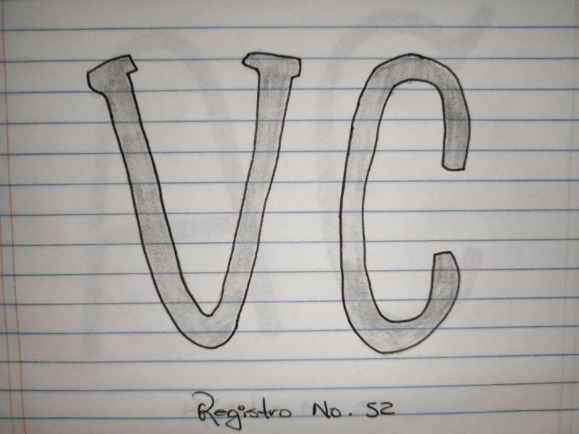 VC
Registro No. 52